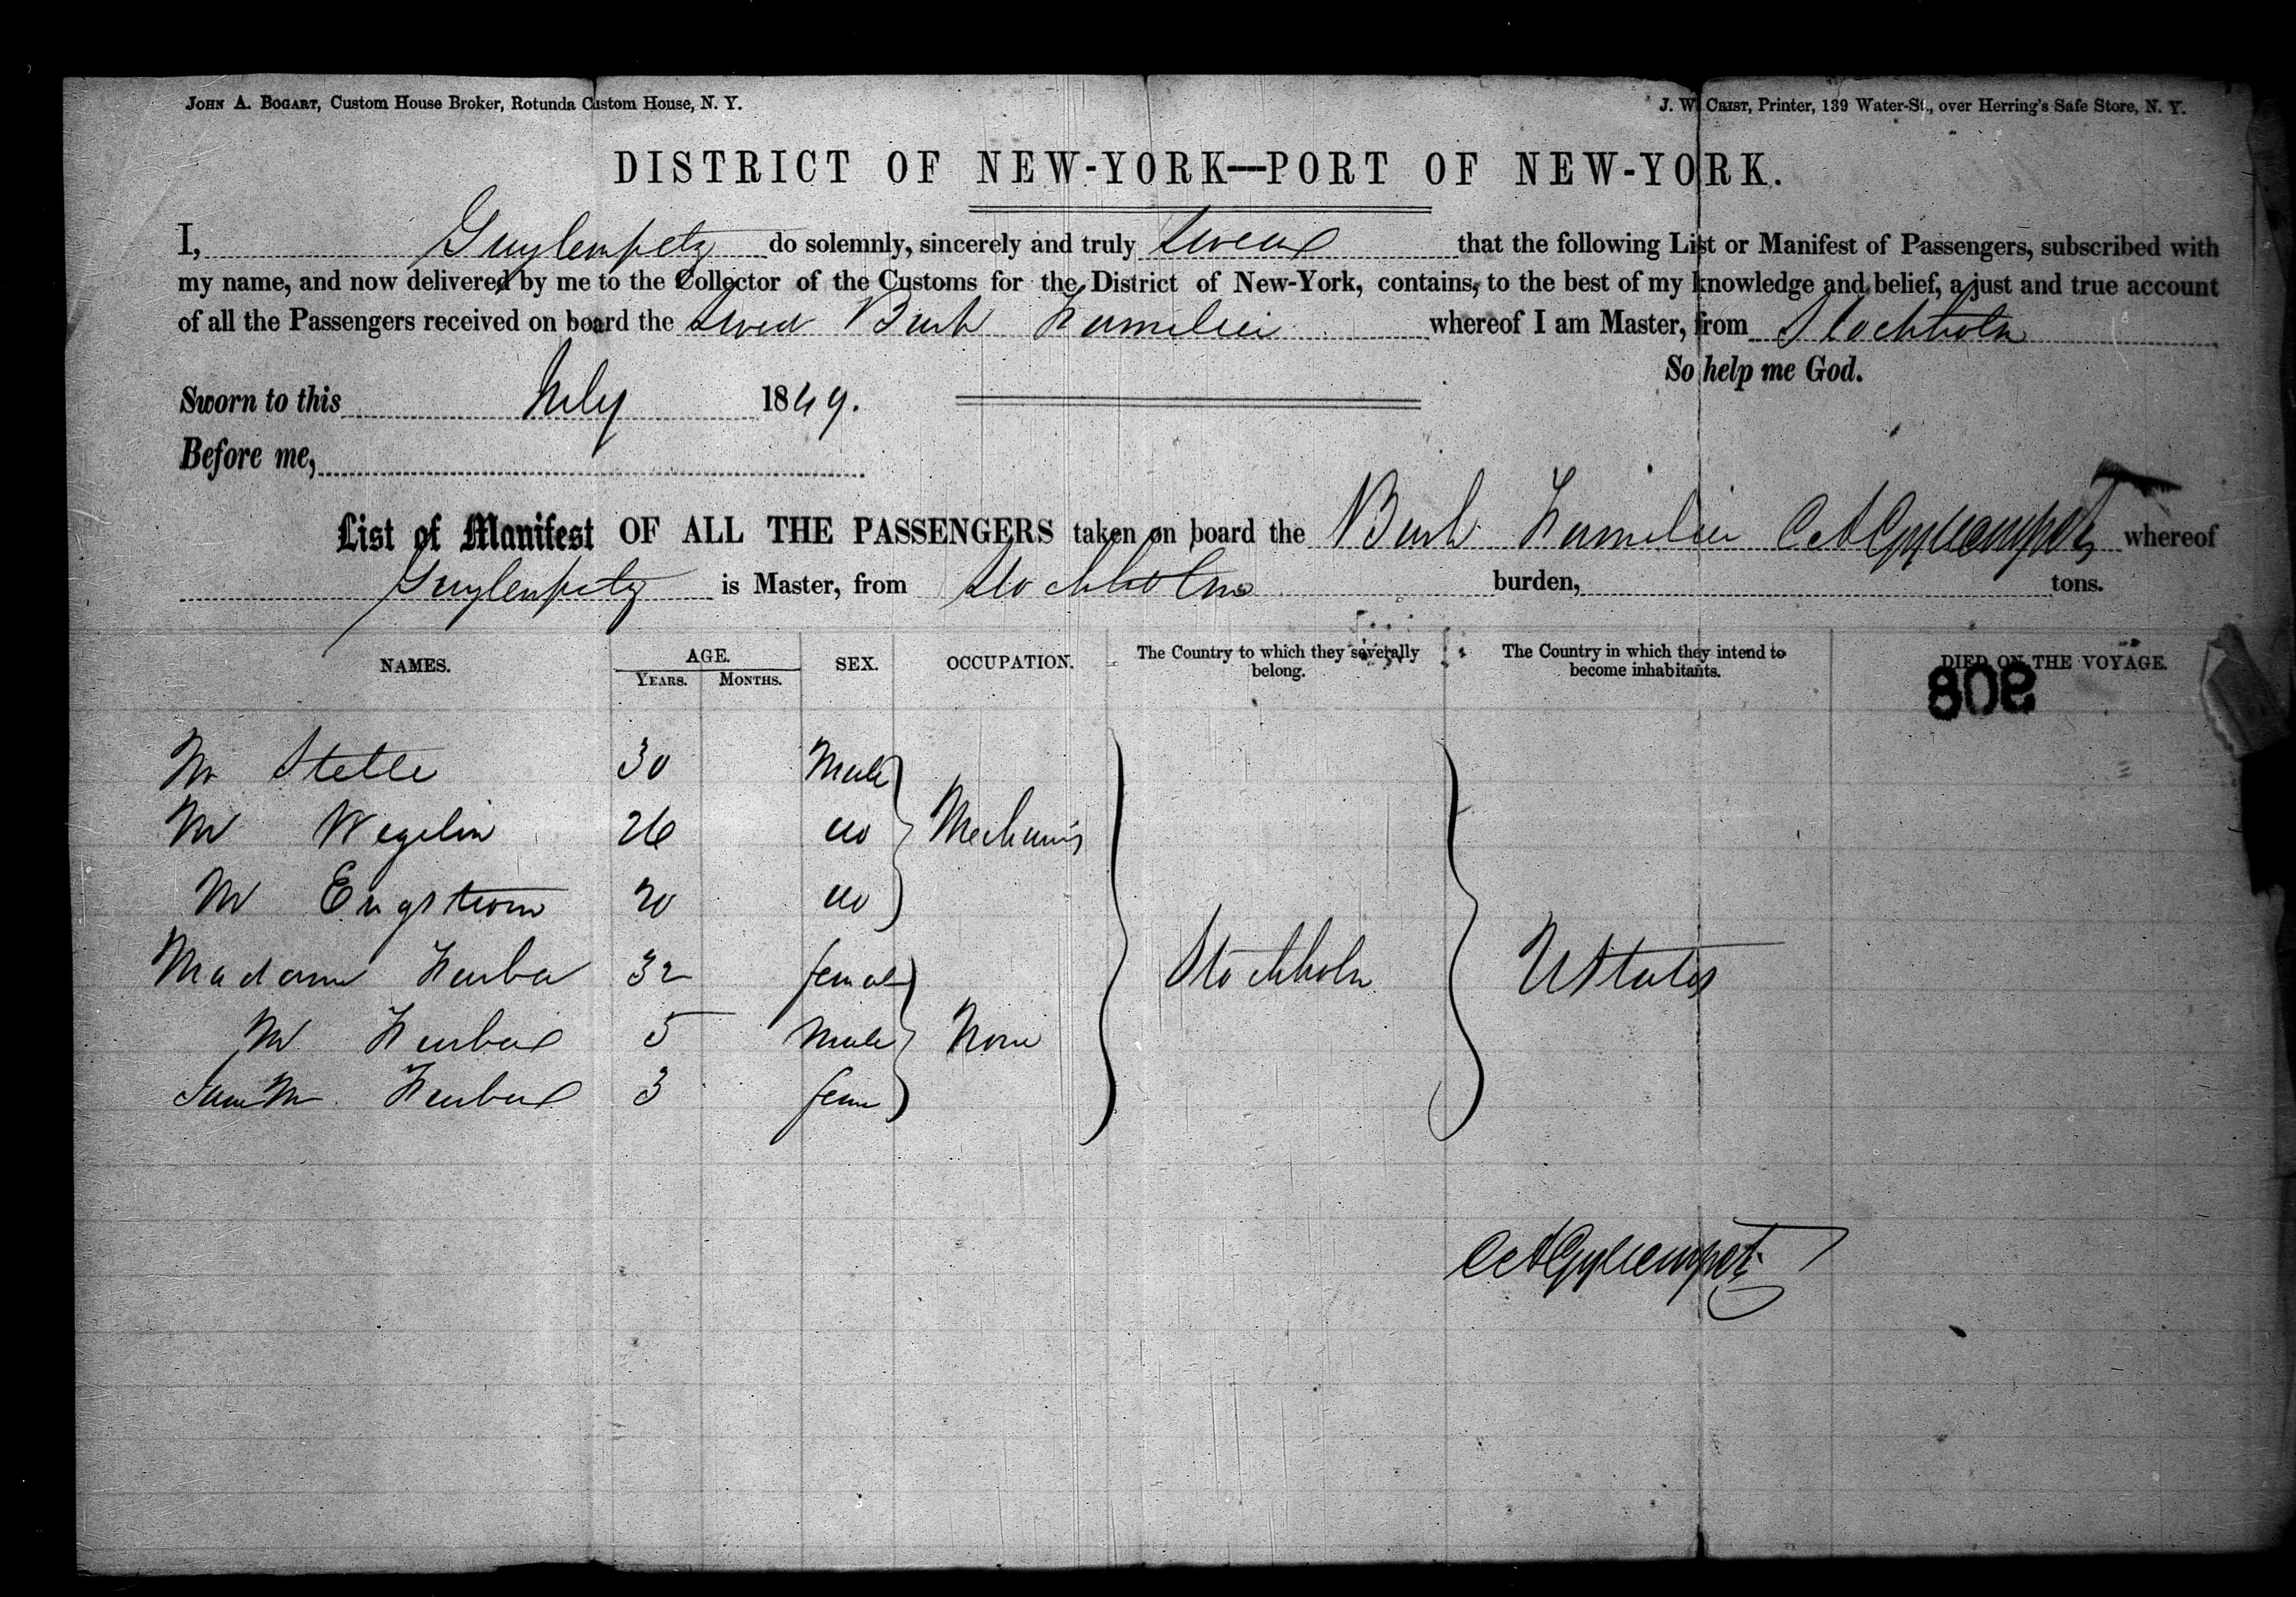 JOHN A. BOGART, Custom House Broker, Rotunda Custom House, N. Y.
J. W. CRIST, Printer, 139 Water-St., over Herring's Safe Store, N. Y.
DISTRICT OF NEW-YORK—PORT OF NEW-YORK.
I, do solemnly, sincerely and truly swear that the following List or Manifest of Passengers, subscribed with
my name, and now delivered by me to the Collector of the Customs for the District of New-York, contains, to the best of my knowledge and belief, a just and true account
of all the Passengers received on board the Swed Bark whereof I am Master, from Stockholm
So help me God.
Sworn to this July 1849.
Before me,
List of Manifest OF ALL THE PASSENGERS taken on board the Bark whereof
is Master, from Stockholm burden, tons.
NAMES. AGE. SEX. OCCUPATION. The Country to which they severally belong. The Country in which they intend to become inhabitants. DIED ON THE VOYAGE.
YEARS. MONTHS.
808
Mr Stelle 30 Male
Mr Wegelin 26 do Mechanis
Mr Engstrom 20 do
Madam 32 female Stockholm U States
Mr 5 Male None
3 fem